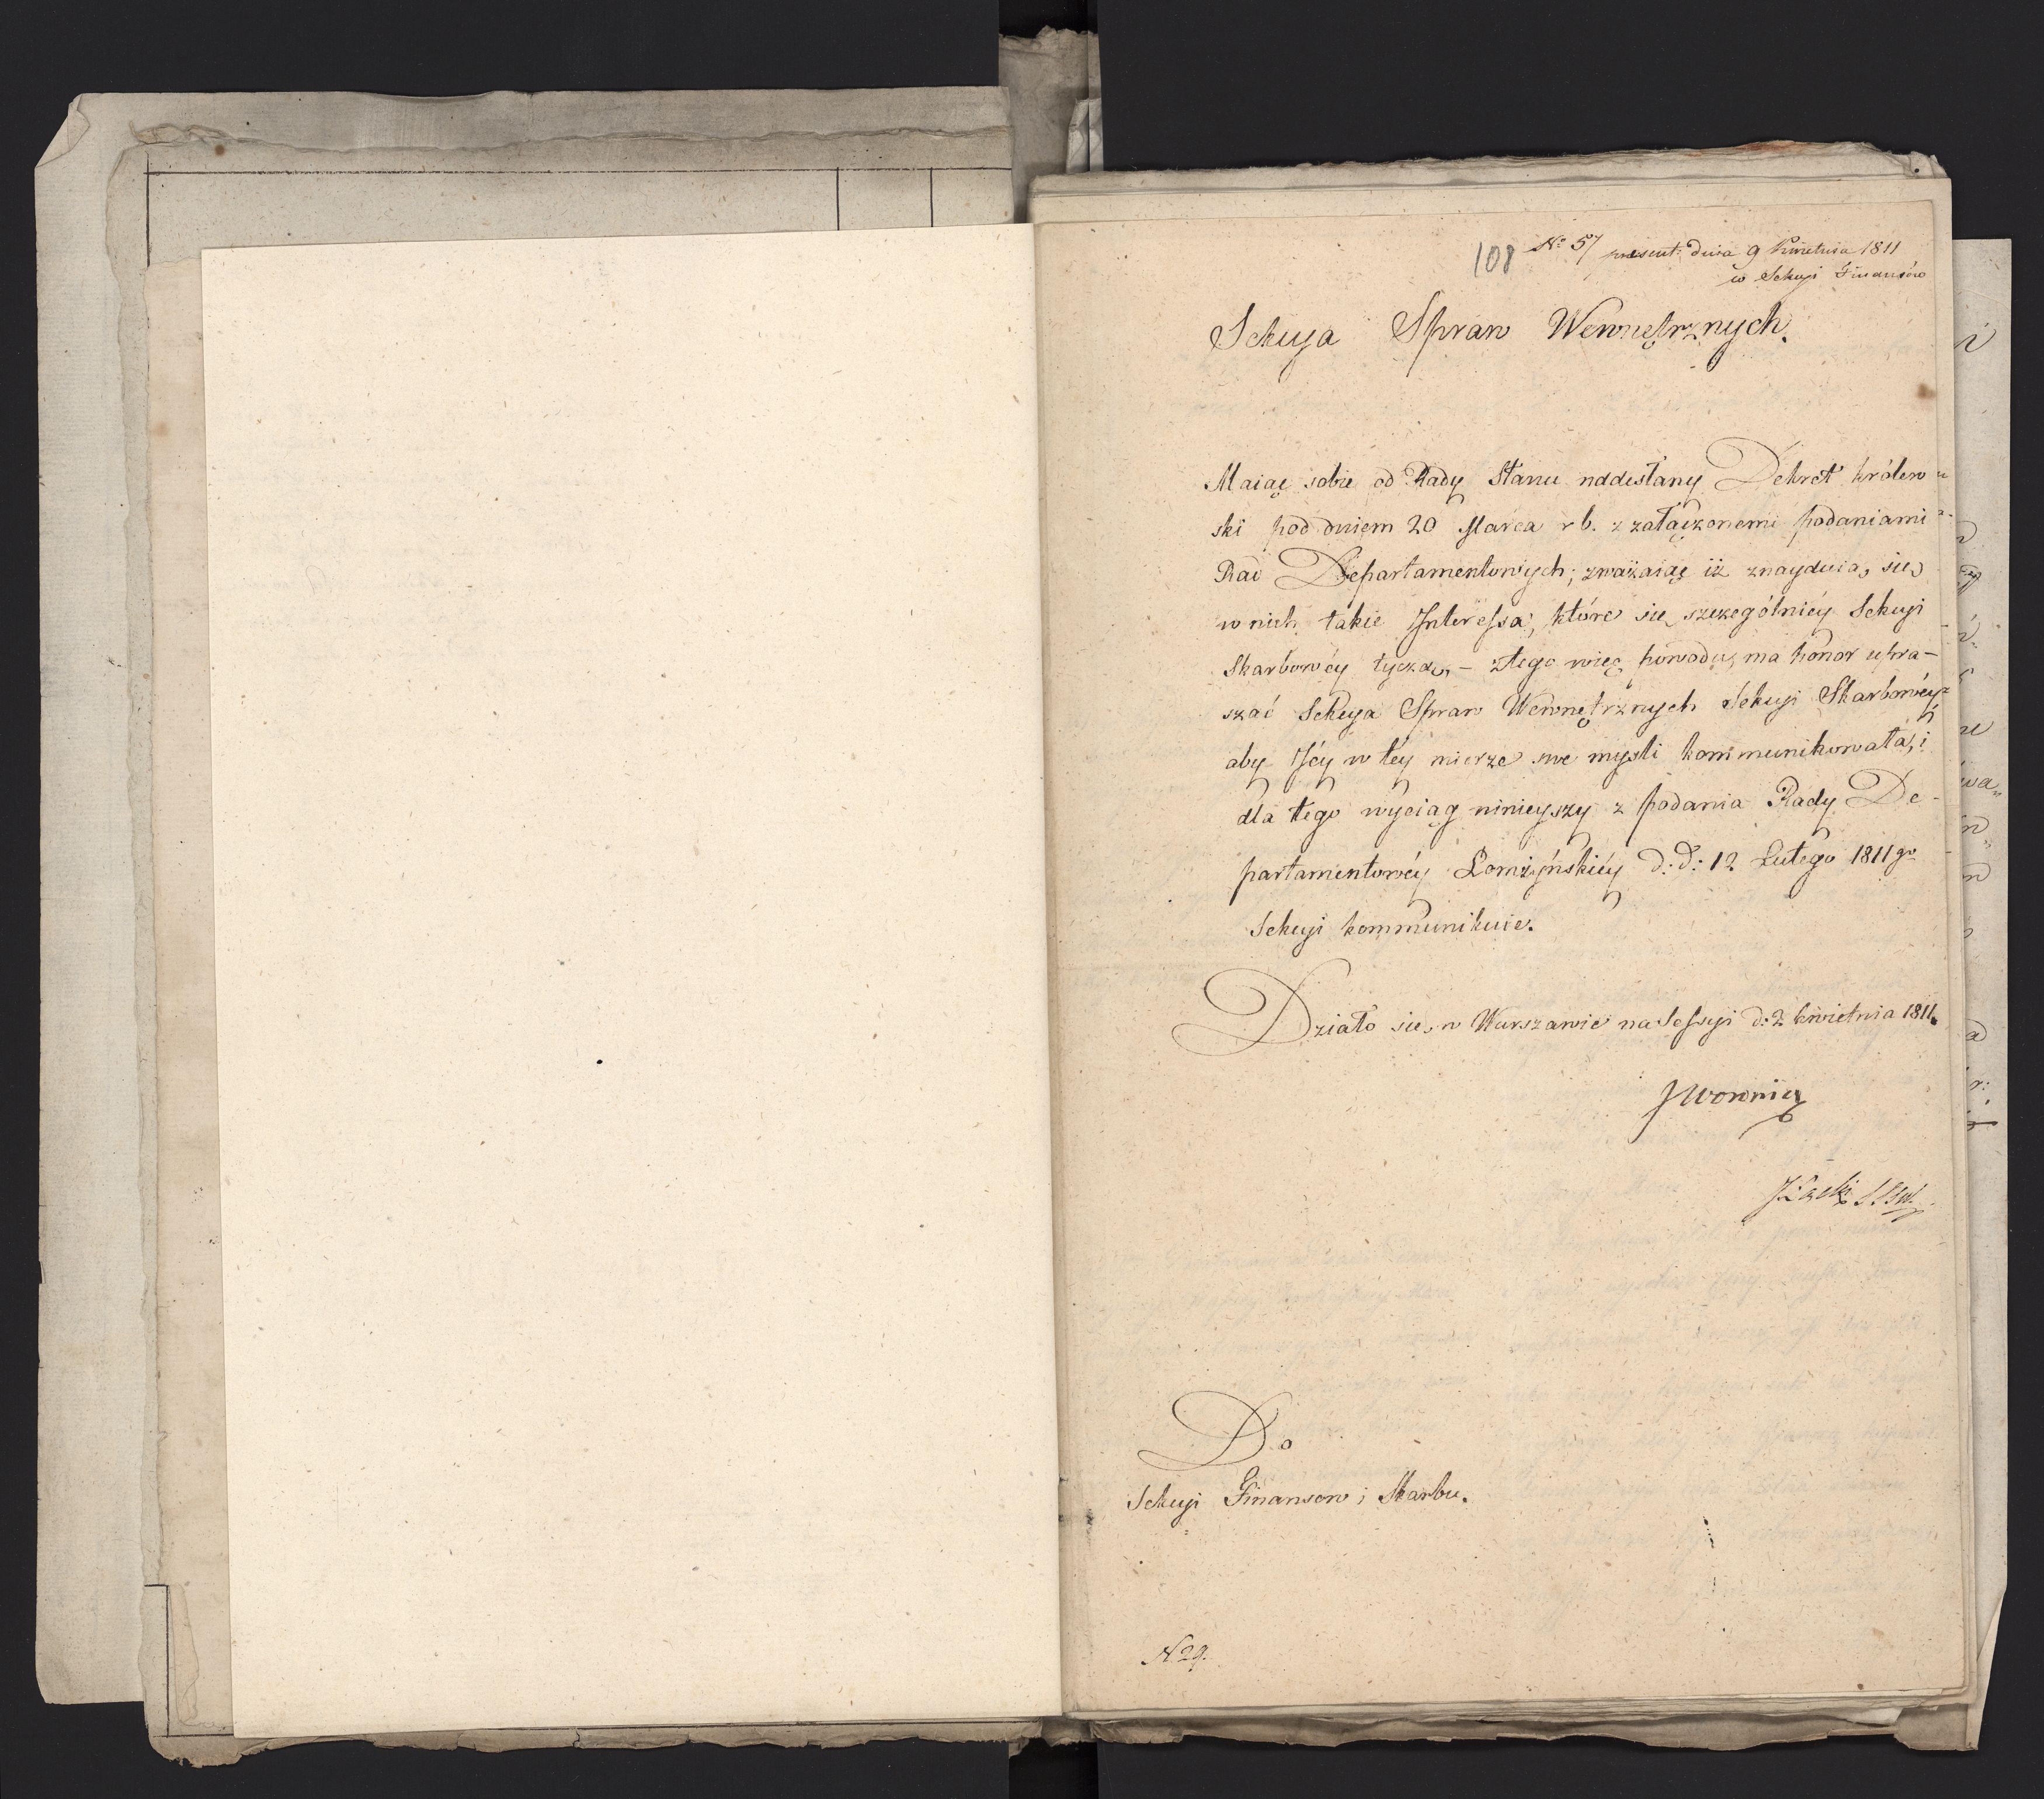 108
No 57 præsent: dnia 9 Kwietnia 1811
w Sekcyi Finansów
Sekcya Spraw Wewnętrznych.
Maiąc sobie od Rady Stanu naddesłany Dekret królew
ski pod dniem 20 Marca r b. z załączonemi podaniami
Rad Departamentowych; zważaiąc iż znayduią się
w nich takie Interessa, które się szczególniéy Sekcyi
Skarbowéy tyczą, – z tego więc powodu, ma honor upra-
szać Sekcya Spraw Wewnętrznych Sekcyi Skarbowéy
aby Jéy w téy mierze swe myśli kommunikowała, i
dla tego wyciąg ninieyszy z podania Rady De-
partamentowéy Łomżyńskiéy d: d: 12 Lutego 1811 go
Sekcyi kommunikuie.
Działo się w Warszawie na Sessyi d: 2 kwietnia 1811.
Woronicz
Do
Sekcyi Finansow i Skarbu.
N 29.